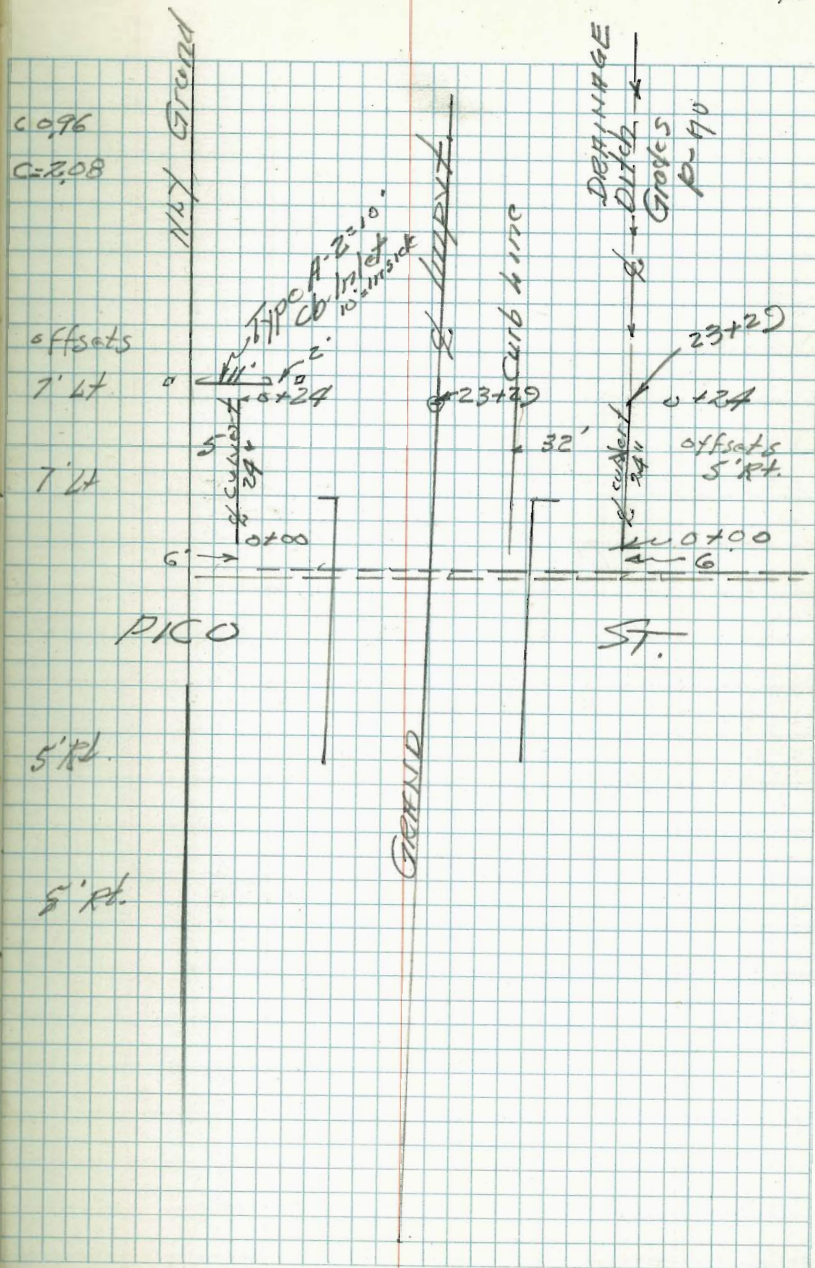 c 0.96
C=2.08
offsets
7' Lt
7' Lt
5' Rt.
5' Rt.
Nly Grand
Type A-2=10'
Cb Inlet
10' = Inside
2'
0+24
5'
℄ Culvert
24"
0+00
6'
℄ Impvt.
23+29
Curb Line
32'
DRAINAGE
Ditch
Grades
℄
23+29
0+24
offsets
5' Rt.
℄ culvert
24"
0+00
6
PICO
ST.
GRAND